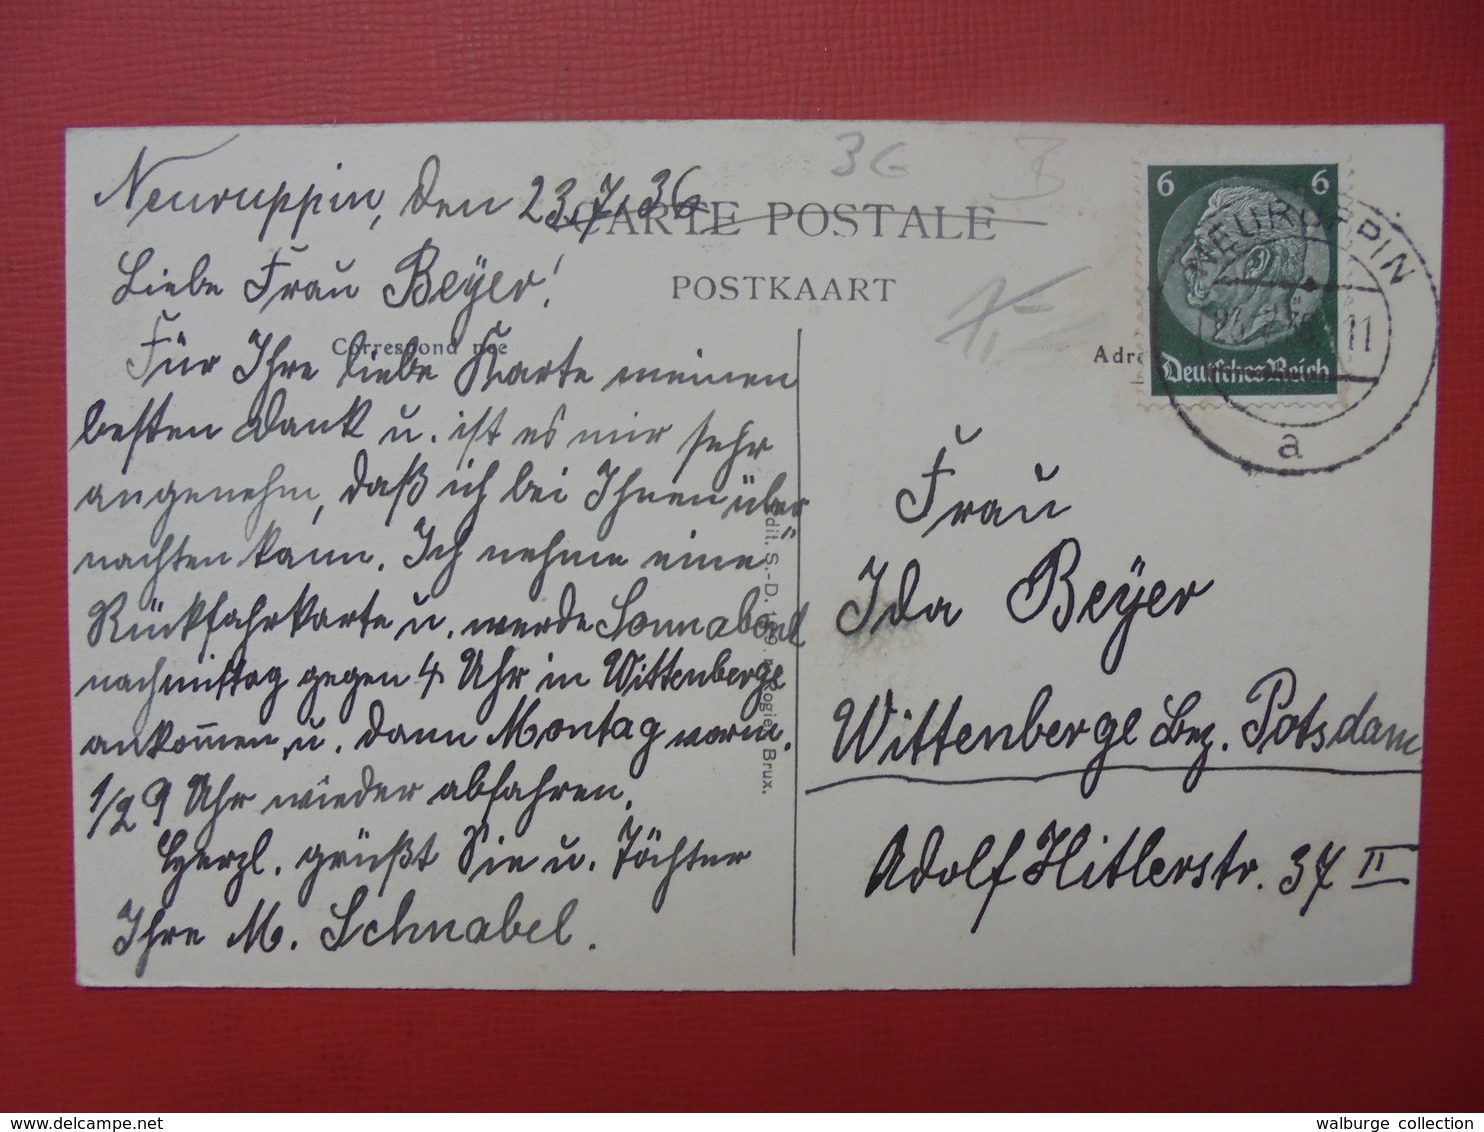 Neuruppin, den 23.7.36
CARTE POSTALE
POSTKAART
Liebe Frau Beyer!
Correspond nce
Für Ihre liebe Karte meinen
besten Dank u. ist es mir sehr
angenehm, daß ich bei Ihnen über
nachten kann. Ich nehme eine
Rückfahrkarte u. werde Sonnabend
nachmittag gegen 4 Uhr in Wittenberge
ankommen u. dann Montag vorm.
1/2 9 Uhr wieder abfahren.
Herzl. grüßt Sie u. Töchter
Ihre M. Schnabel.
Edit. S.-D.
Rogier Brux.
3G
B
6 6
Deutsches Reich
NEURUPPIN
23.7.36 11
a
Adre
Frau
Ida Beyer
Wittenberge Bez. Potsdam
Adolf Hitlerstr. 37 II
walburge collection